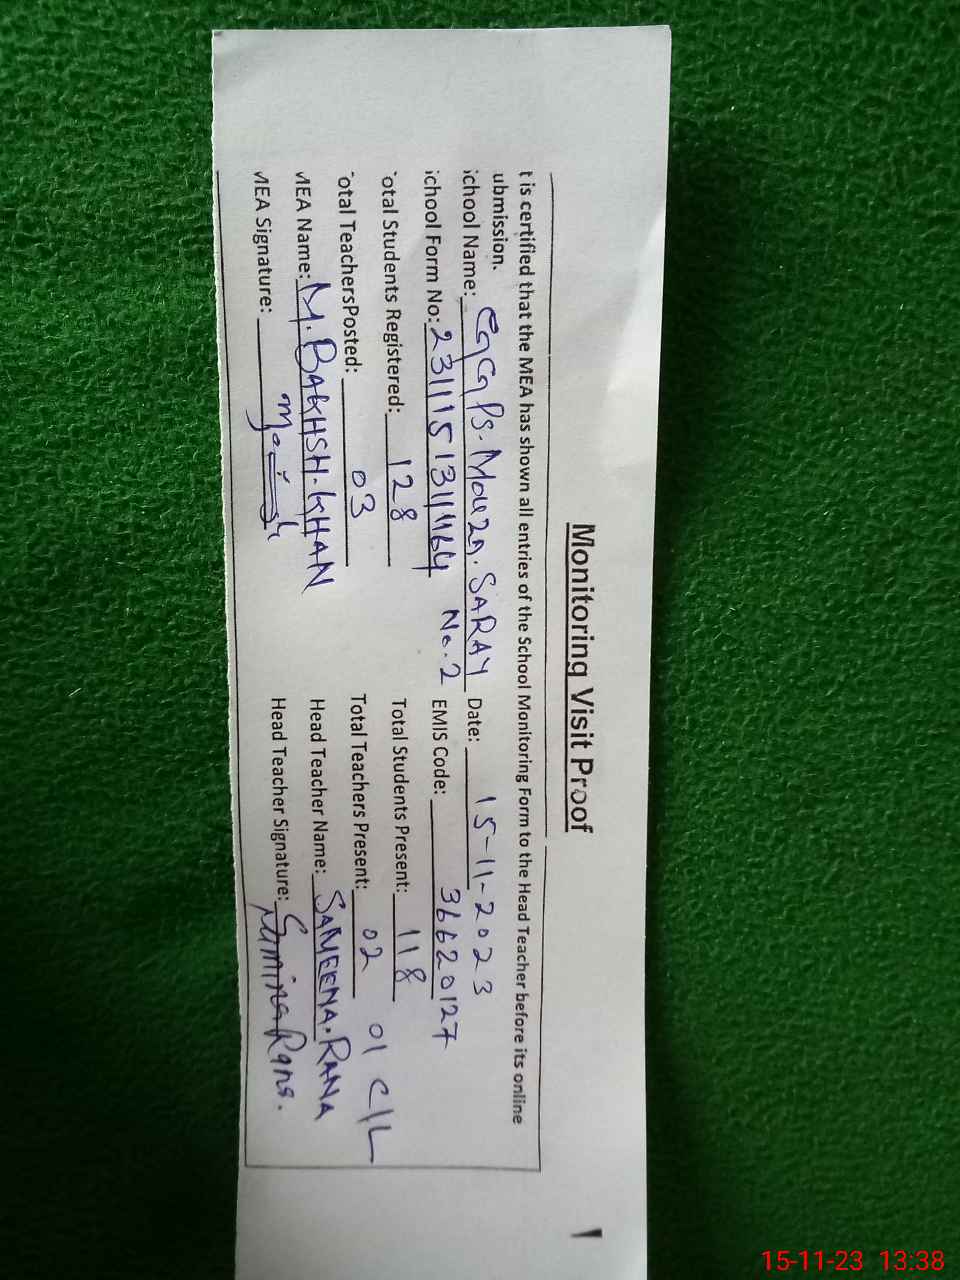 Monitoring Visit Proof
t is certified that the MEA has shown all entries of the School Monitoring Form to the Head Teacher before its online
ubmission.
ichool Name: GGPS. Mouza. SARAY No.2 Date: 15-11-2023
ichool Form No: EMIS Code: 36620127
otal Students Registered: 128 Total Students Present: 118
otal TeachersPosted: 03 Total Teachers Present: 02 01 C/L
MEA Name: M. BAKHSH. KHAN Head Teacher Name: SAMEENA. RANA
MEA Signature: Head Teacher Signature: Samina Rana.
15-11-23 13:38